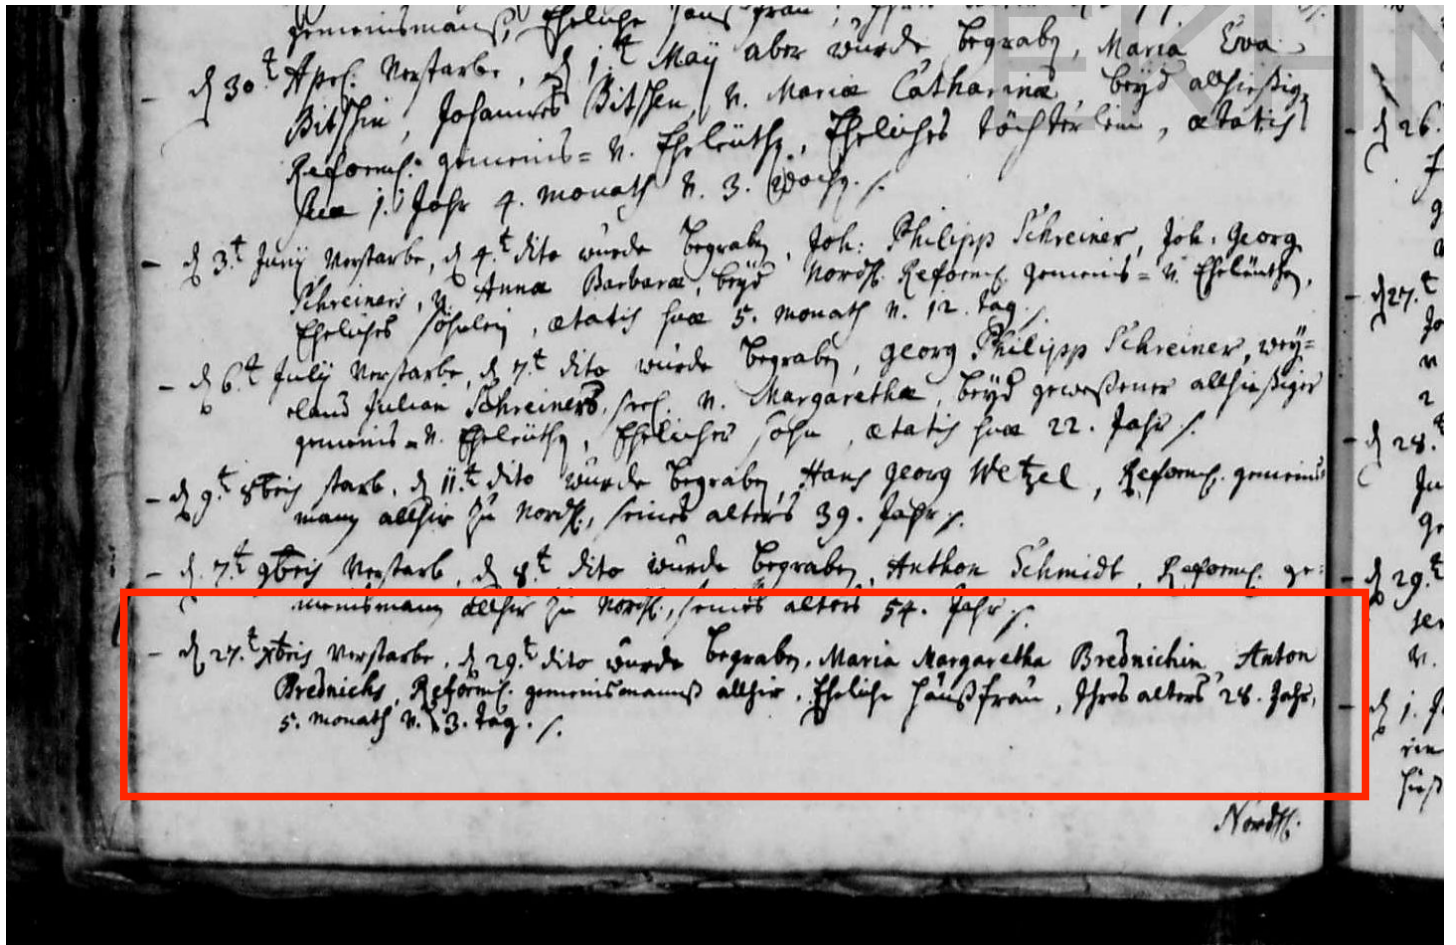 gemeinsmanß, Eheliche Hausfrau,
EKHN
- d 30.t Apr. Verstarbe, d 1.t Maÿ aber wurde begraben, Maria Eva
Bitschin, Johannes Bitschen, u. Mariæ Catharinæ, beÿd alhießig
Reform. gemeins= u. Eheleuthen, Eheliches töchterlein, ætatis
suæ 1. Jahr 4. monath u. 3. Wochen ./.
- d 3.t Junÿ Verstarbe, d 4.t dito wurde begraben, Joh: Philipp Schreiner, Joh: Georg
Schreiners, u. Annæ Barbaræ, beÿd Nordh. Reform. gemeins= u. Eheleuthen,
Eheliches söhnlein, ætatis suæ 5. monath u. 12. tag ./.
- d 6.t Julÿ Verstarbe, d 7.t dito wurde begraben, Georg Philipp Schreiner, weÿ=
eland Julian Schreiners, seel. u. Margarethæ, beÿd geweßener allhießiger
gemeins= u. Eheleuthen, Ehelicher sohn, ætatis suæ 22. Jahr ./.
- d 9.t 8bris starb, d 11.t dito wurde begraben, Hans Georg Wetzel, Reform. gemeins=
mann allhier zu Nordh., seines alters 39. Jahr ./.
- d. 7.t 9bris Verstarb, d 8.t dito wurde begraben, Anthon Schmidt, Reform. ge=
meinsmann allhir zu Nordh., seines alters 54. Jahr ./.
- d 27.t Xbris Verstarbe, d 29.t dito wurde begraben, Maria Margaretha Brednichin, Anton
Brednichs, Reform. gemeinsmanß allhir, Eheliche Haußfrau, Ihres alters 28. Jahr,
5. monath u. 3. tag. ./.
Nordh.
- d 26.
- d 27.t
- d 28.t
- d 29.t
- d 1.